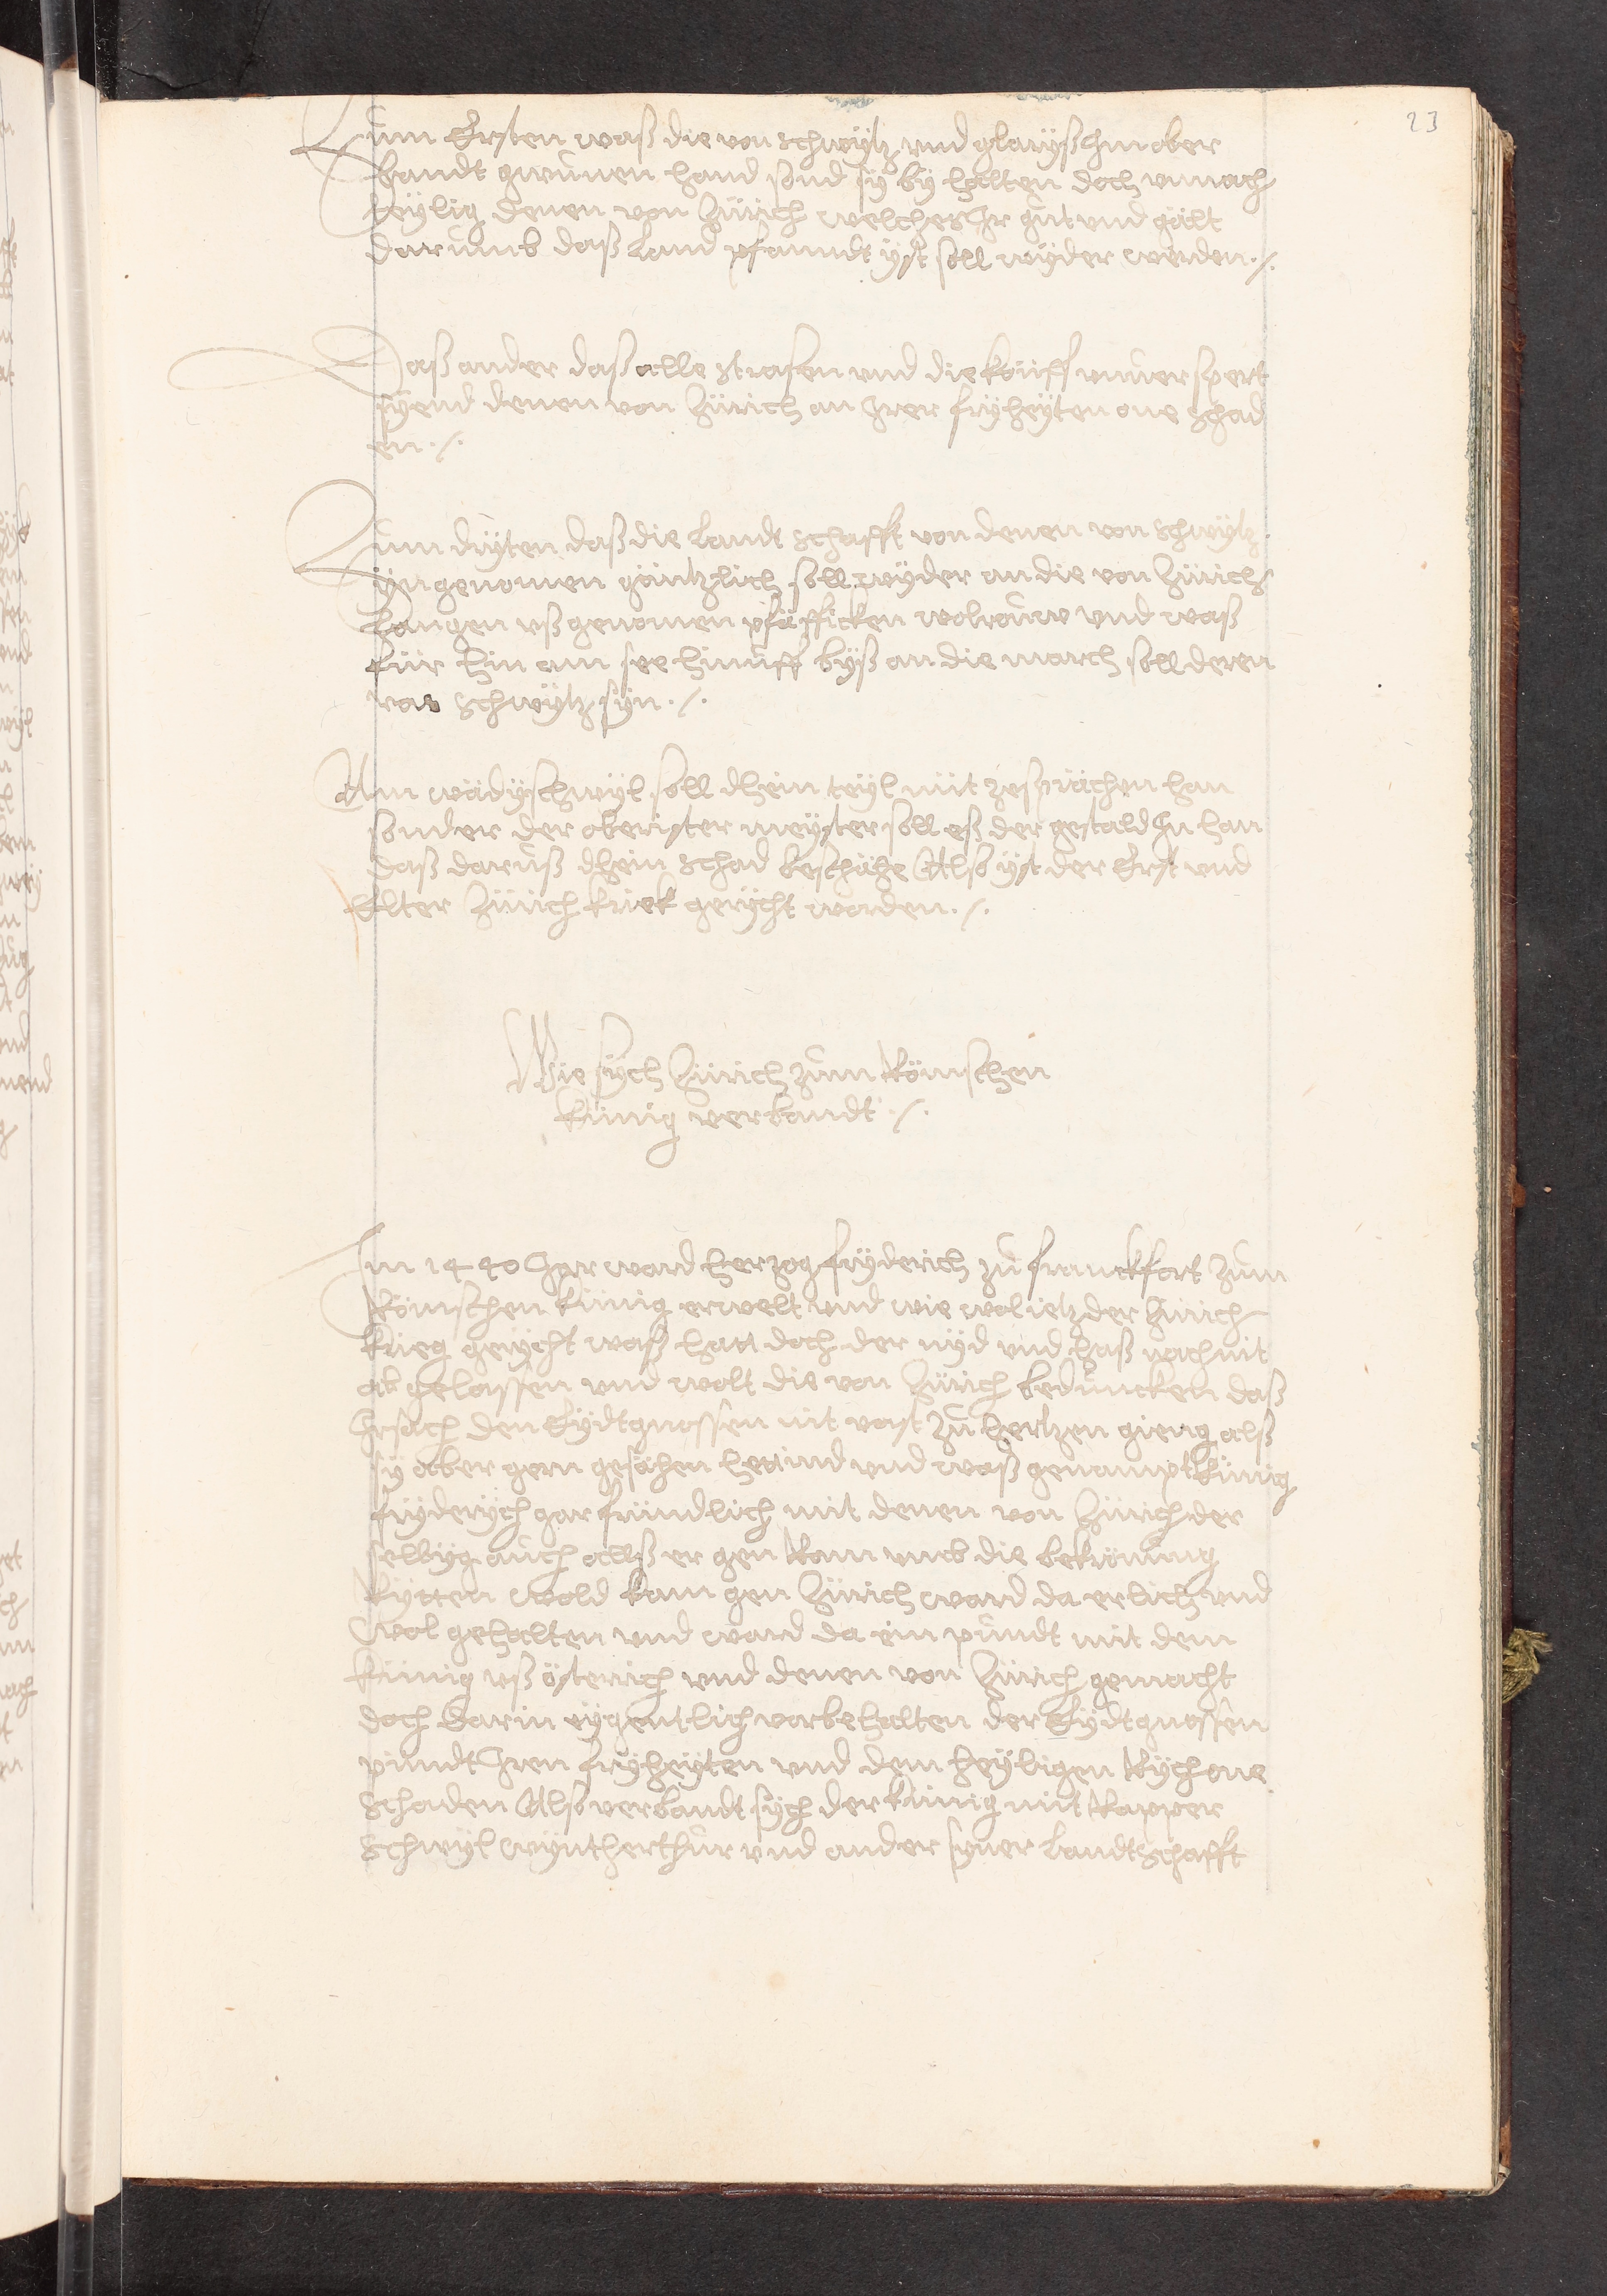 23
Zum Ersten waß die von schwytz und glaryß Im ober
landt gwunen hand sond sy by halten doch unnach
teylig denen von Zürich welcher Ir gut und gält
darumb daß land pfandt yst soll wyder werden ./.
Daß ander daß alle strasen und die köuff unverspert
syend denen von Zürich an Irer fryheyten one schad
en ./.
Zum dryten daß die landtschafft von denen von schwytz
yngenomen gäntzlich soll wyder an die von Zürich
langen ußgenomen pfäfficken wolrouw und waß
für hin am see hinuff byß an die march soll deren
von schwytz syn ./.
Am wädyschwyl soll dhein teyl nüt zesprächen han
sonder der oberister meyster soll eß der gestald In han
daß daruß dhein schad beschähe Alß yst der Erst und
Elter Zürich kriek gerycht worden ./.
Wie sych Zürich zum Römschen
künig verbandt ./.
Im 1440 Jar ward herzog fryderich zu franckfort zum
Römschen künig erwelt und wie wol ietz der Zürich
krieg gerycht waß hatt doch der nyd und haß noch nit
ab gelassen und wolt die von Zürich beduncken daß
Ir sach den Eydtgnossen nit vast zu hertzen gieng alß
sy aber gern gesähen hettind und waß genampt künig
fryderych gar fründlich mit denen von Zürich der
selbyg auch allß er gen Rom umb die bekrönung
Rytten wold kam gen Zürich ward da erlich und
wol gehalten und ward da ein pundt mit dem
künig uß österich und denen von Zürich gemacht
doch darin eygentlich vorbehalten der Eydtgnossen
pündt Iren fryheyten und dem heyligen Rych one
schaden Alß verbandt sych der künig mit Rapper
schwyl wynthertur und ander syner landtschafft